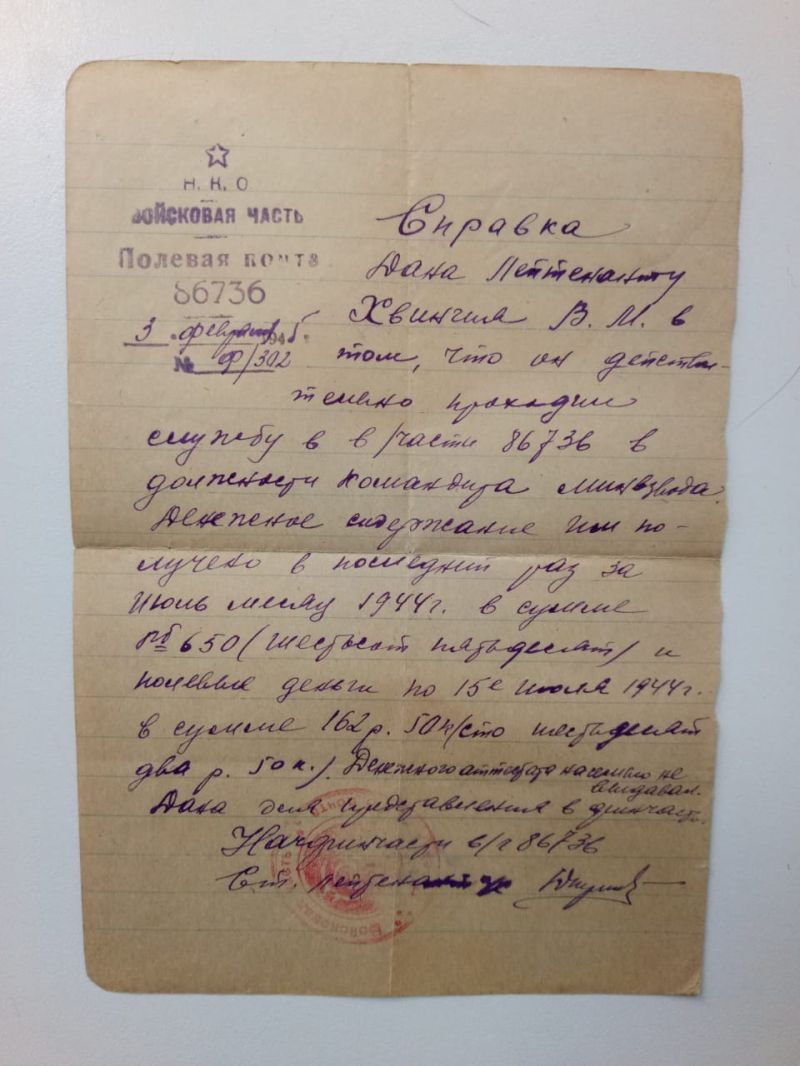 Н. К. О
ВОЙСКОВАЯ ЧАСТЬ
Полевая почта
86736
3 февраля 1945 г.
№ Ф/302
Справка
Дана Лейтенанту
Хвингия В. М. в
том, что он действи-
тельно проходил
службу в в/части 86736 в
должности командира минвзвода.
Денежное содержание им по-
лучено в последний раз за
Июль месяц 1944 г. в сумме
рб 650 (шестьсот пятьдесят) и
полевые деньги по 15е июля 1944 г.
в сумме 162 р. 50 к (сто шестьдесят
два р. 50 к.). Денежного аттестата на семью не
выдавал.
Дана для представления в финчасть.
Начфинчасти в/ч 86736
Ст. лейтенант
Войсковая